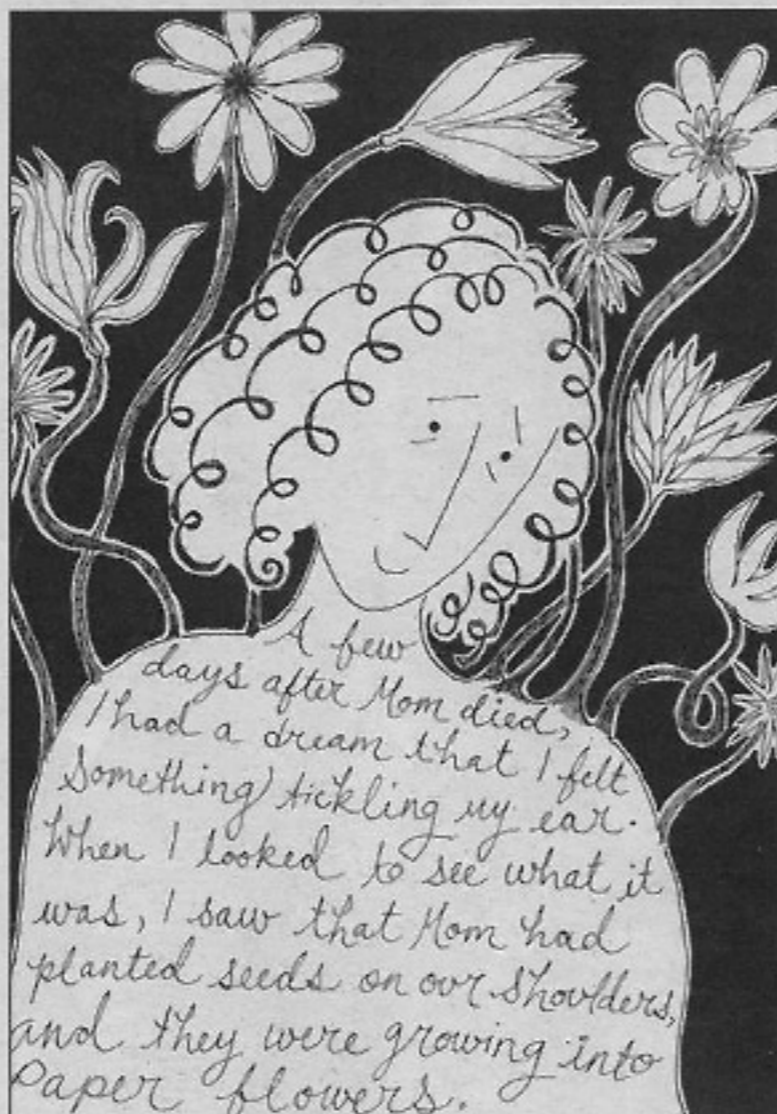 A few
days after Mom died,
I had a dream that I felt
Something tickling my ear.
When I looked to see what it
was, I saw that Mom had
planted seeds on our shoulders,
and they were growing into
Paper flowers.